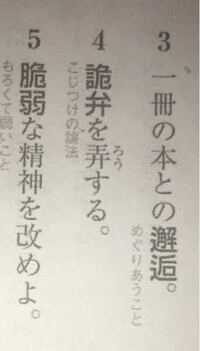 3 一冊の本との邂逅。
めぐりあうこと
4 詭弁を弄する。
ろう
こじつけの論法
5 脆弱な精神を改めよ。
もろくて弱いこと